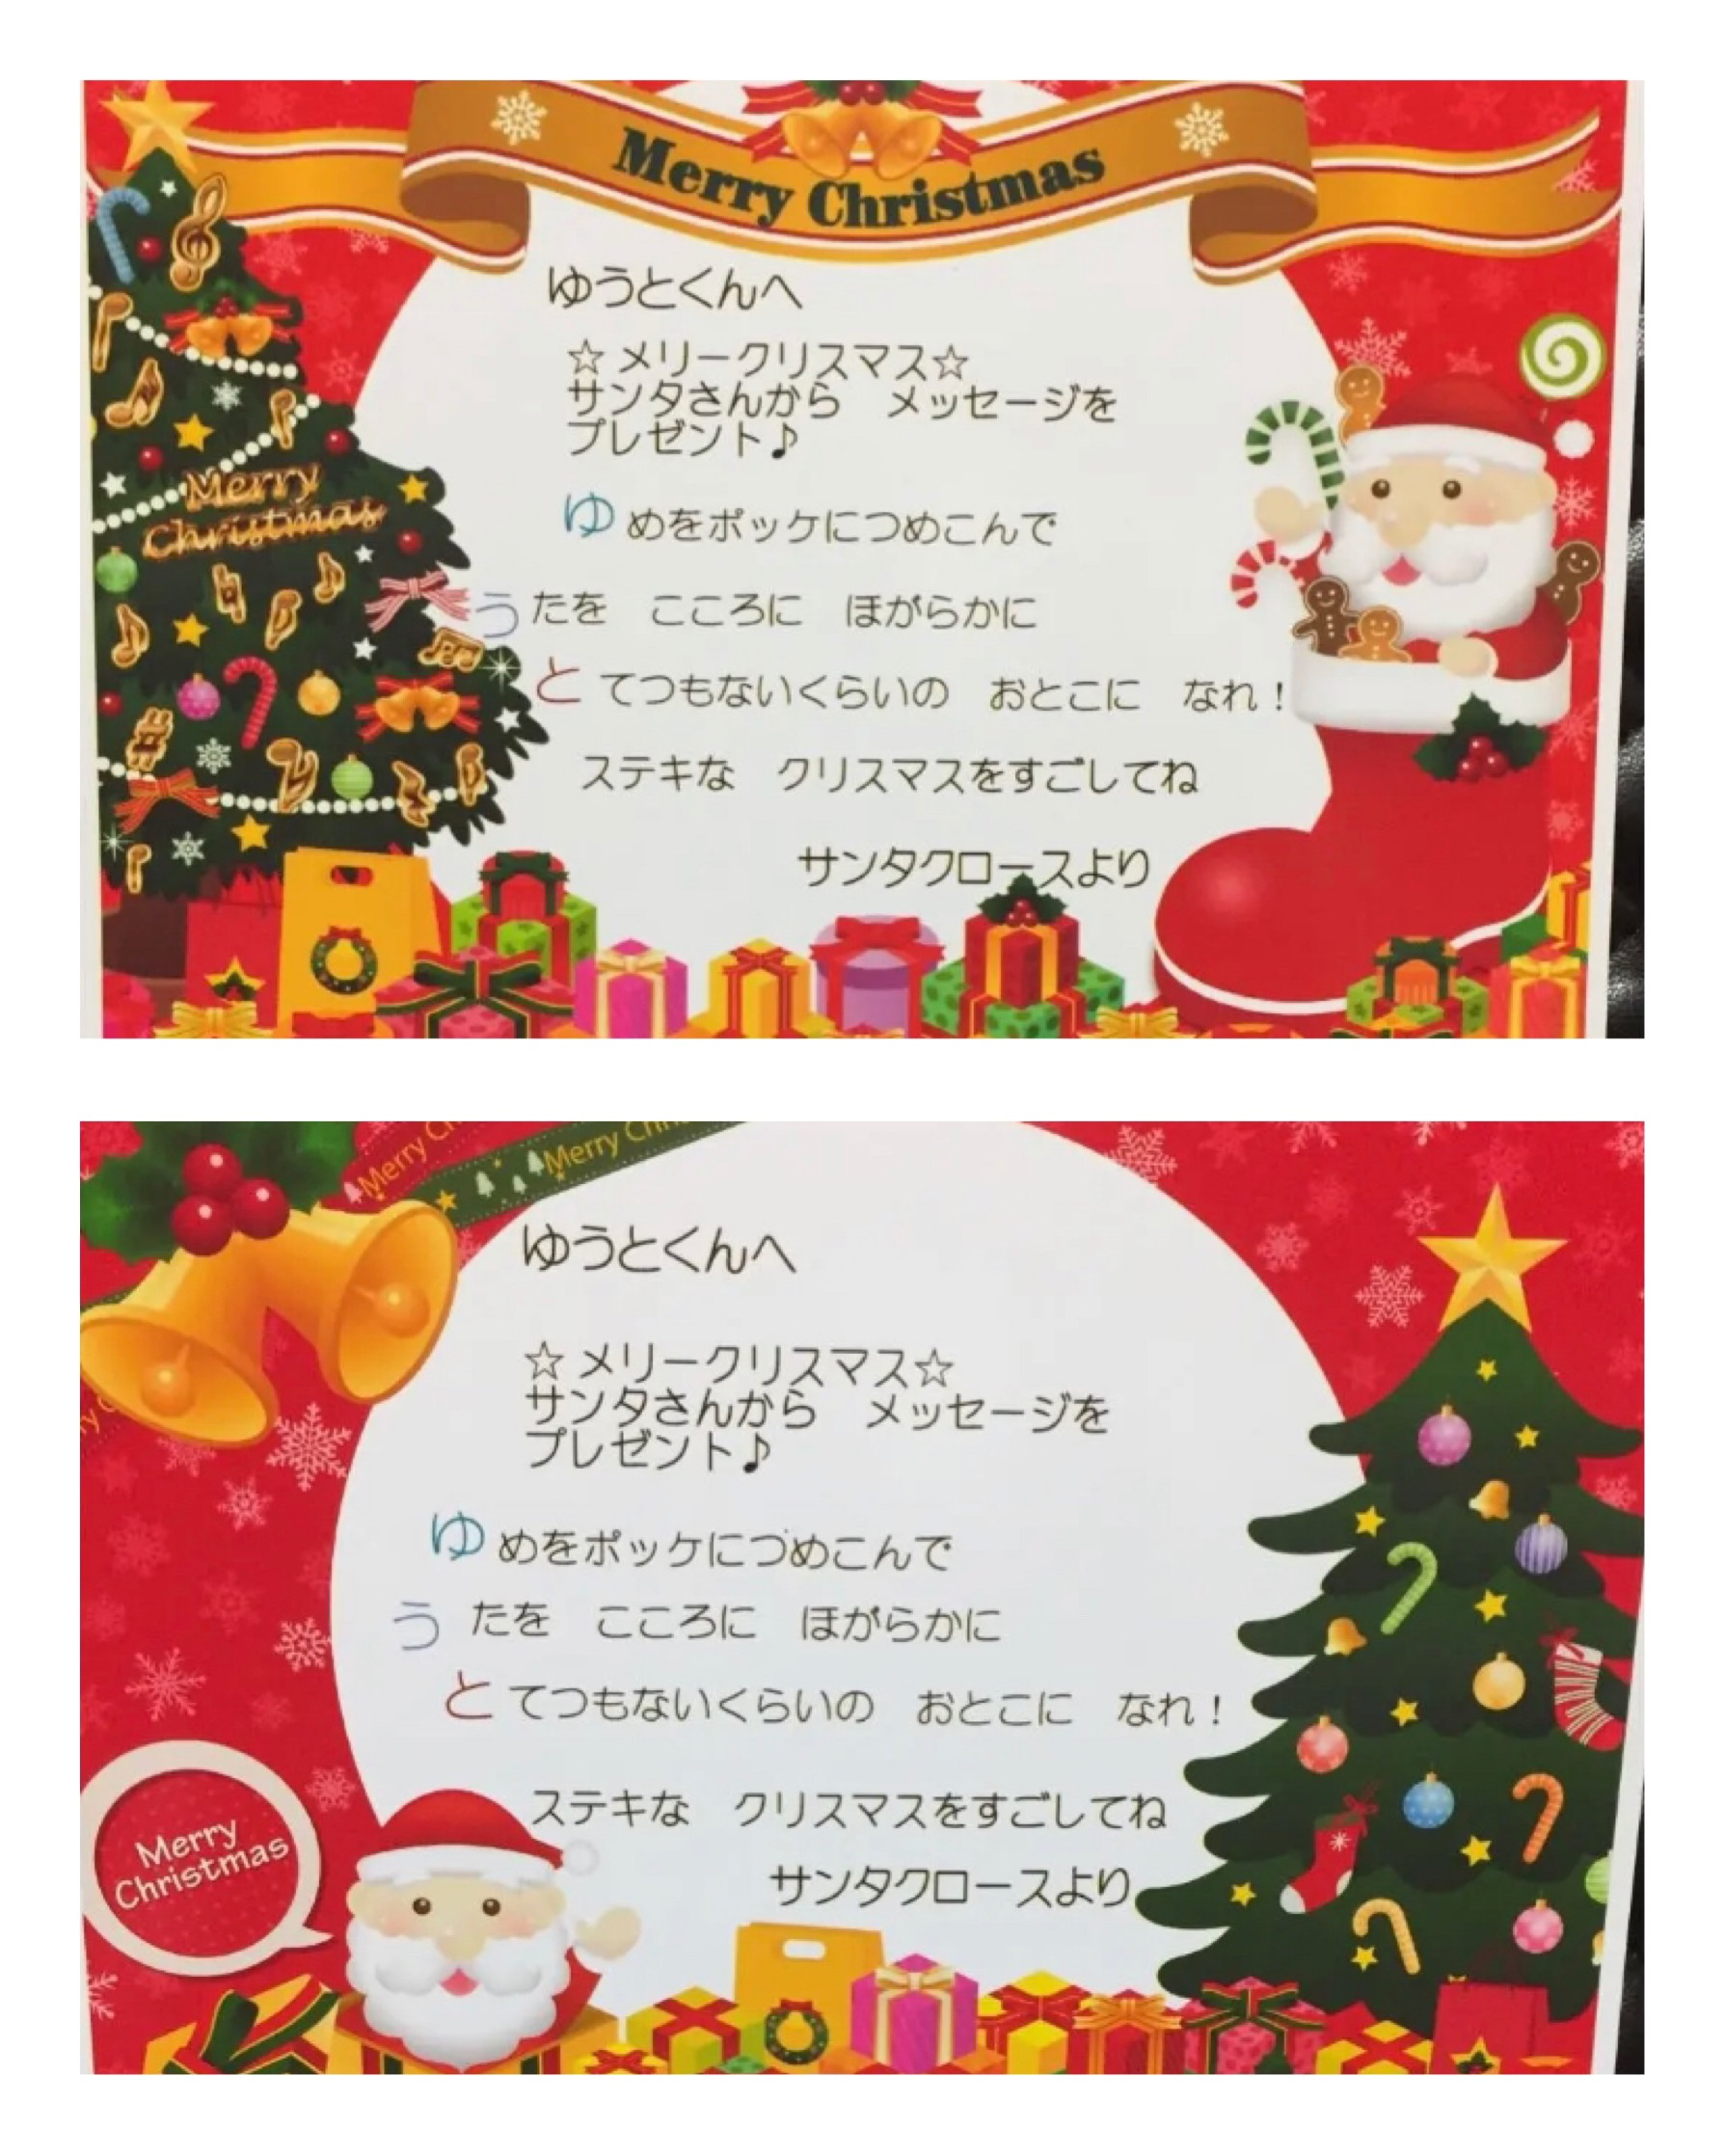 Merry Christmas
Merry
Christmas
ゆうとくんへ
☆メリークリスマス☆
サンタさんから　メッセージを
プレゼント♪
ゆめをポッケにつめこんで
うたを　こころに　ほがらかに
とてつもないくらいの　おとこに　なれ！
ステキな　クリスマスをすごしてね
サンタクロースより
Merry
Merry
ゆうとくんへ
☆メリークリスマス☆
サンタさんから　メッセージを
プレゼント♪
ゆめをポッケにつめこんで
うたを　こころに　ほがらかに
とてつもないくらいの　おとこに　なれ！
ステキな　クリスマスをすごしてね
サンタクロースより
Merry
Christmas